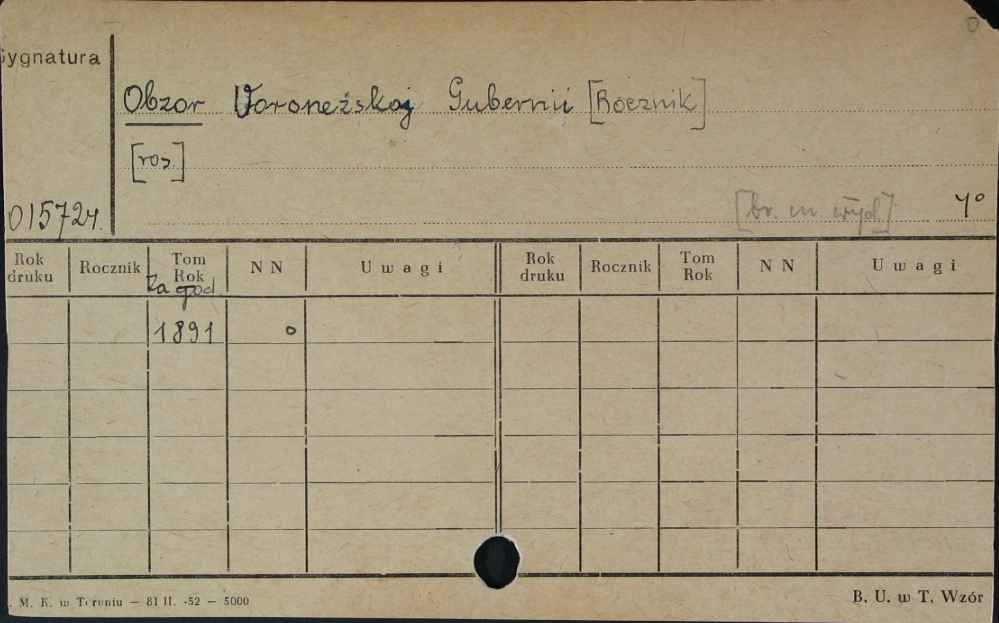 Sygnatura
Obzor Voronežskoj Gubernii [Rocznik]
[ros.]
[br. m. wyd] 4°
015724.
Rok druku Rocznik Tom Rok N N Uwagi Rok druku Rocznik Tom Rok N N Uwagi
Za god
1891 o
M. K. w Toruniu — 81 II. -52 — 5000
B. U. w T. Wzór